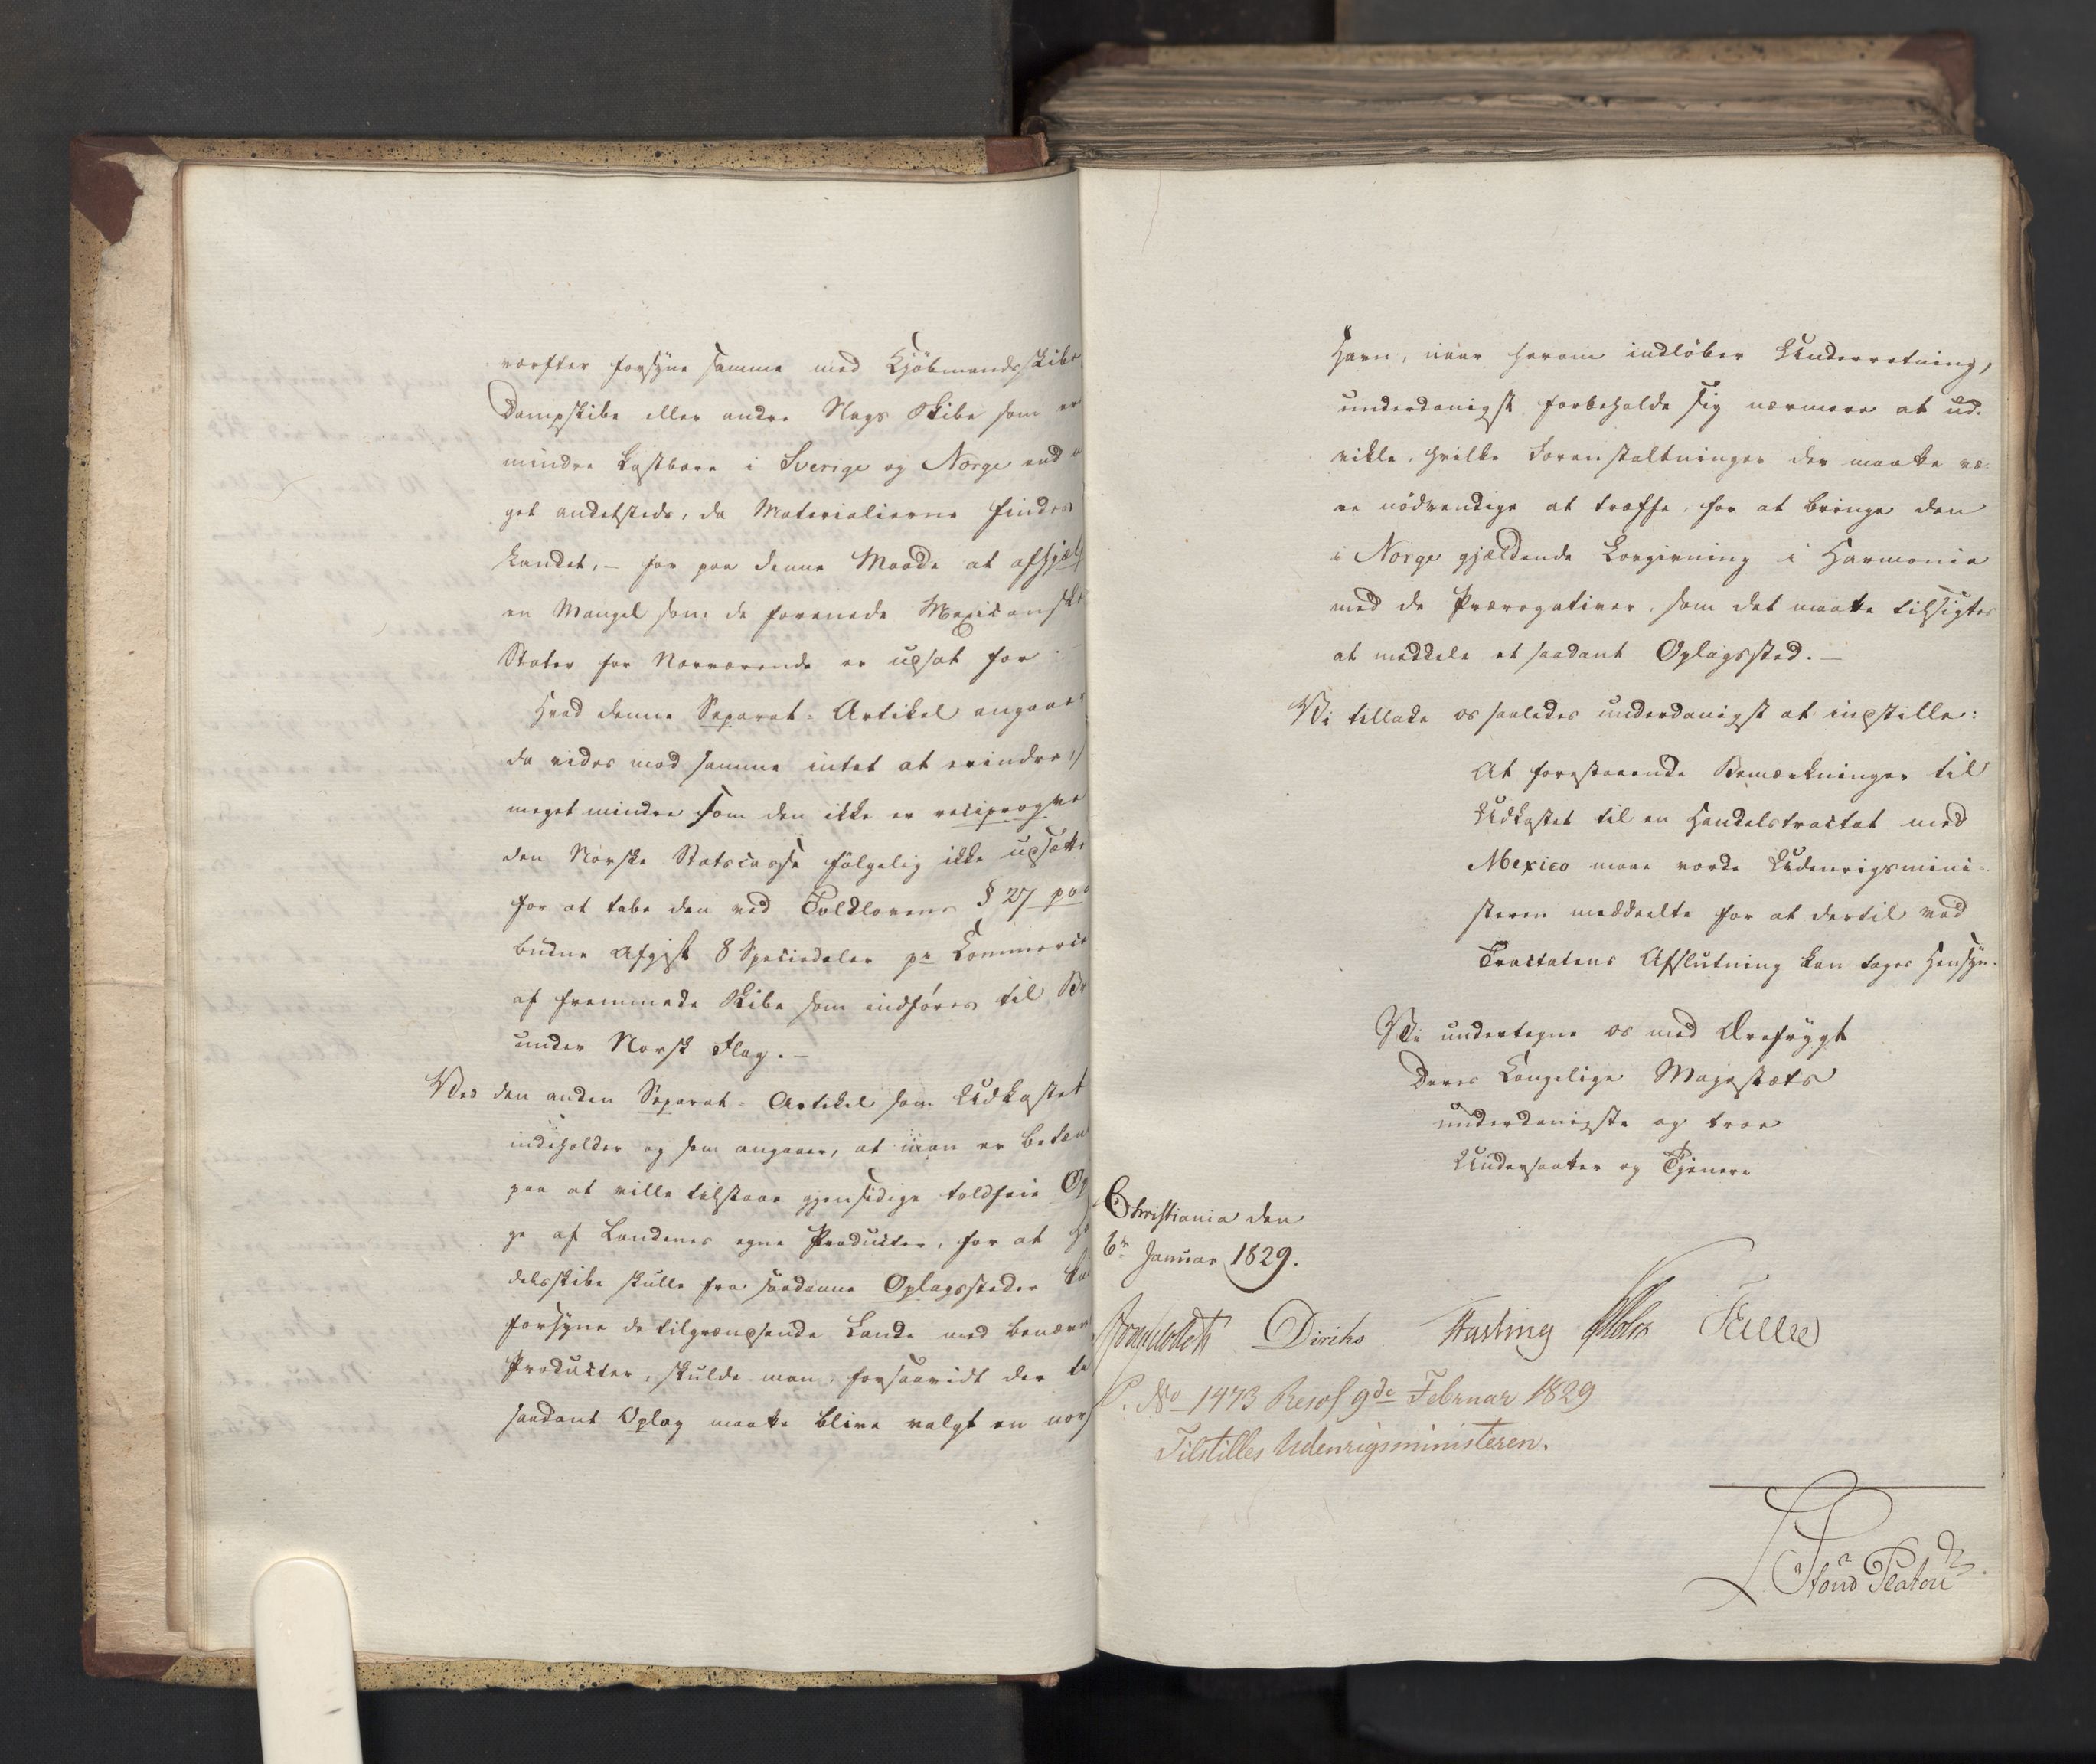 værfter forsyne samme med Kjöbmandsskibe
Dampskibe eller andre Slags Skibe som er
mindre kostbare i Sverige og Norge end
get andetsteds, da Materialierne findes
Landet, – for paa denne Maade at afhjæl
en Mangel som de forenede Mexicanske
Stater for Nærværende er udsat for
Hvad denne Separat-Artikel angaaer
da vides mod samme intet at erindre,
meget mindre som den ikke er reciproqve
den Norske Statscasse fölgelig ikke udsættes
for at tabe den ved Toldlovens § 27 paa
budne Afgift 8 Speciedaler pr Commerce
af fremmede Skibe som indföres til Br
under Norsk Flag. –
Ved den anden Separat-Artikel som Udkastet
indeholder og som angaaer, at man er betæn
paa at ville tilstaae gjensidige toldfrie Op
ge af Landenes egne Producter, for at H
delsskibe skulle fra saadanne Oplagssteder
forsyne de tilgrændsende Lande med benævn
Producter, skulde man, forsaavidt der
saadant Oplag maatte blive valgt en norsk
Havn, naar herom indlöber Underretning,
underdanigst forbeholde sig nærmere at ud-
vikle, hvilke Foranstaltninger der maatte væ-
re nödvendige at træffe, for at bringe den
i Norge gjældende Lovgivning i Harmonie
med de Prærogativer, som det maatte tilsigtes
at meddele et saadant Oplagssted. –
Vi tillade os saaledes underdanigst at indstille:
At forestaaende Bemærkninger til
Udkastet til en Handelstractat med
Mexico maae vorde Udenrigsmini-
steren meddeelte for at dertil ved
Tractatens Afslutning kan tages Hensyn.
Vi undertegne os med Ærefrygt
Deres Kongelige Majestæts
underdanigste og troe
Undersaatter og Tjenere
Christiania den
6te Januar 1829.
Diriks Fasting
P. No 1473 Resol 9de Februar 1829
Tilstilles Udenrigsministeren.
Platou